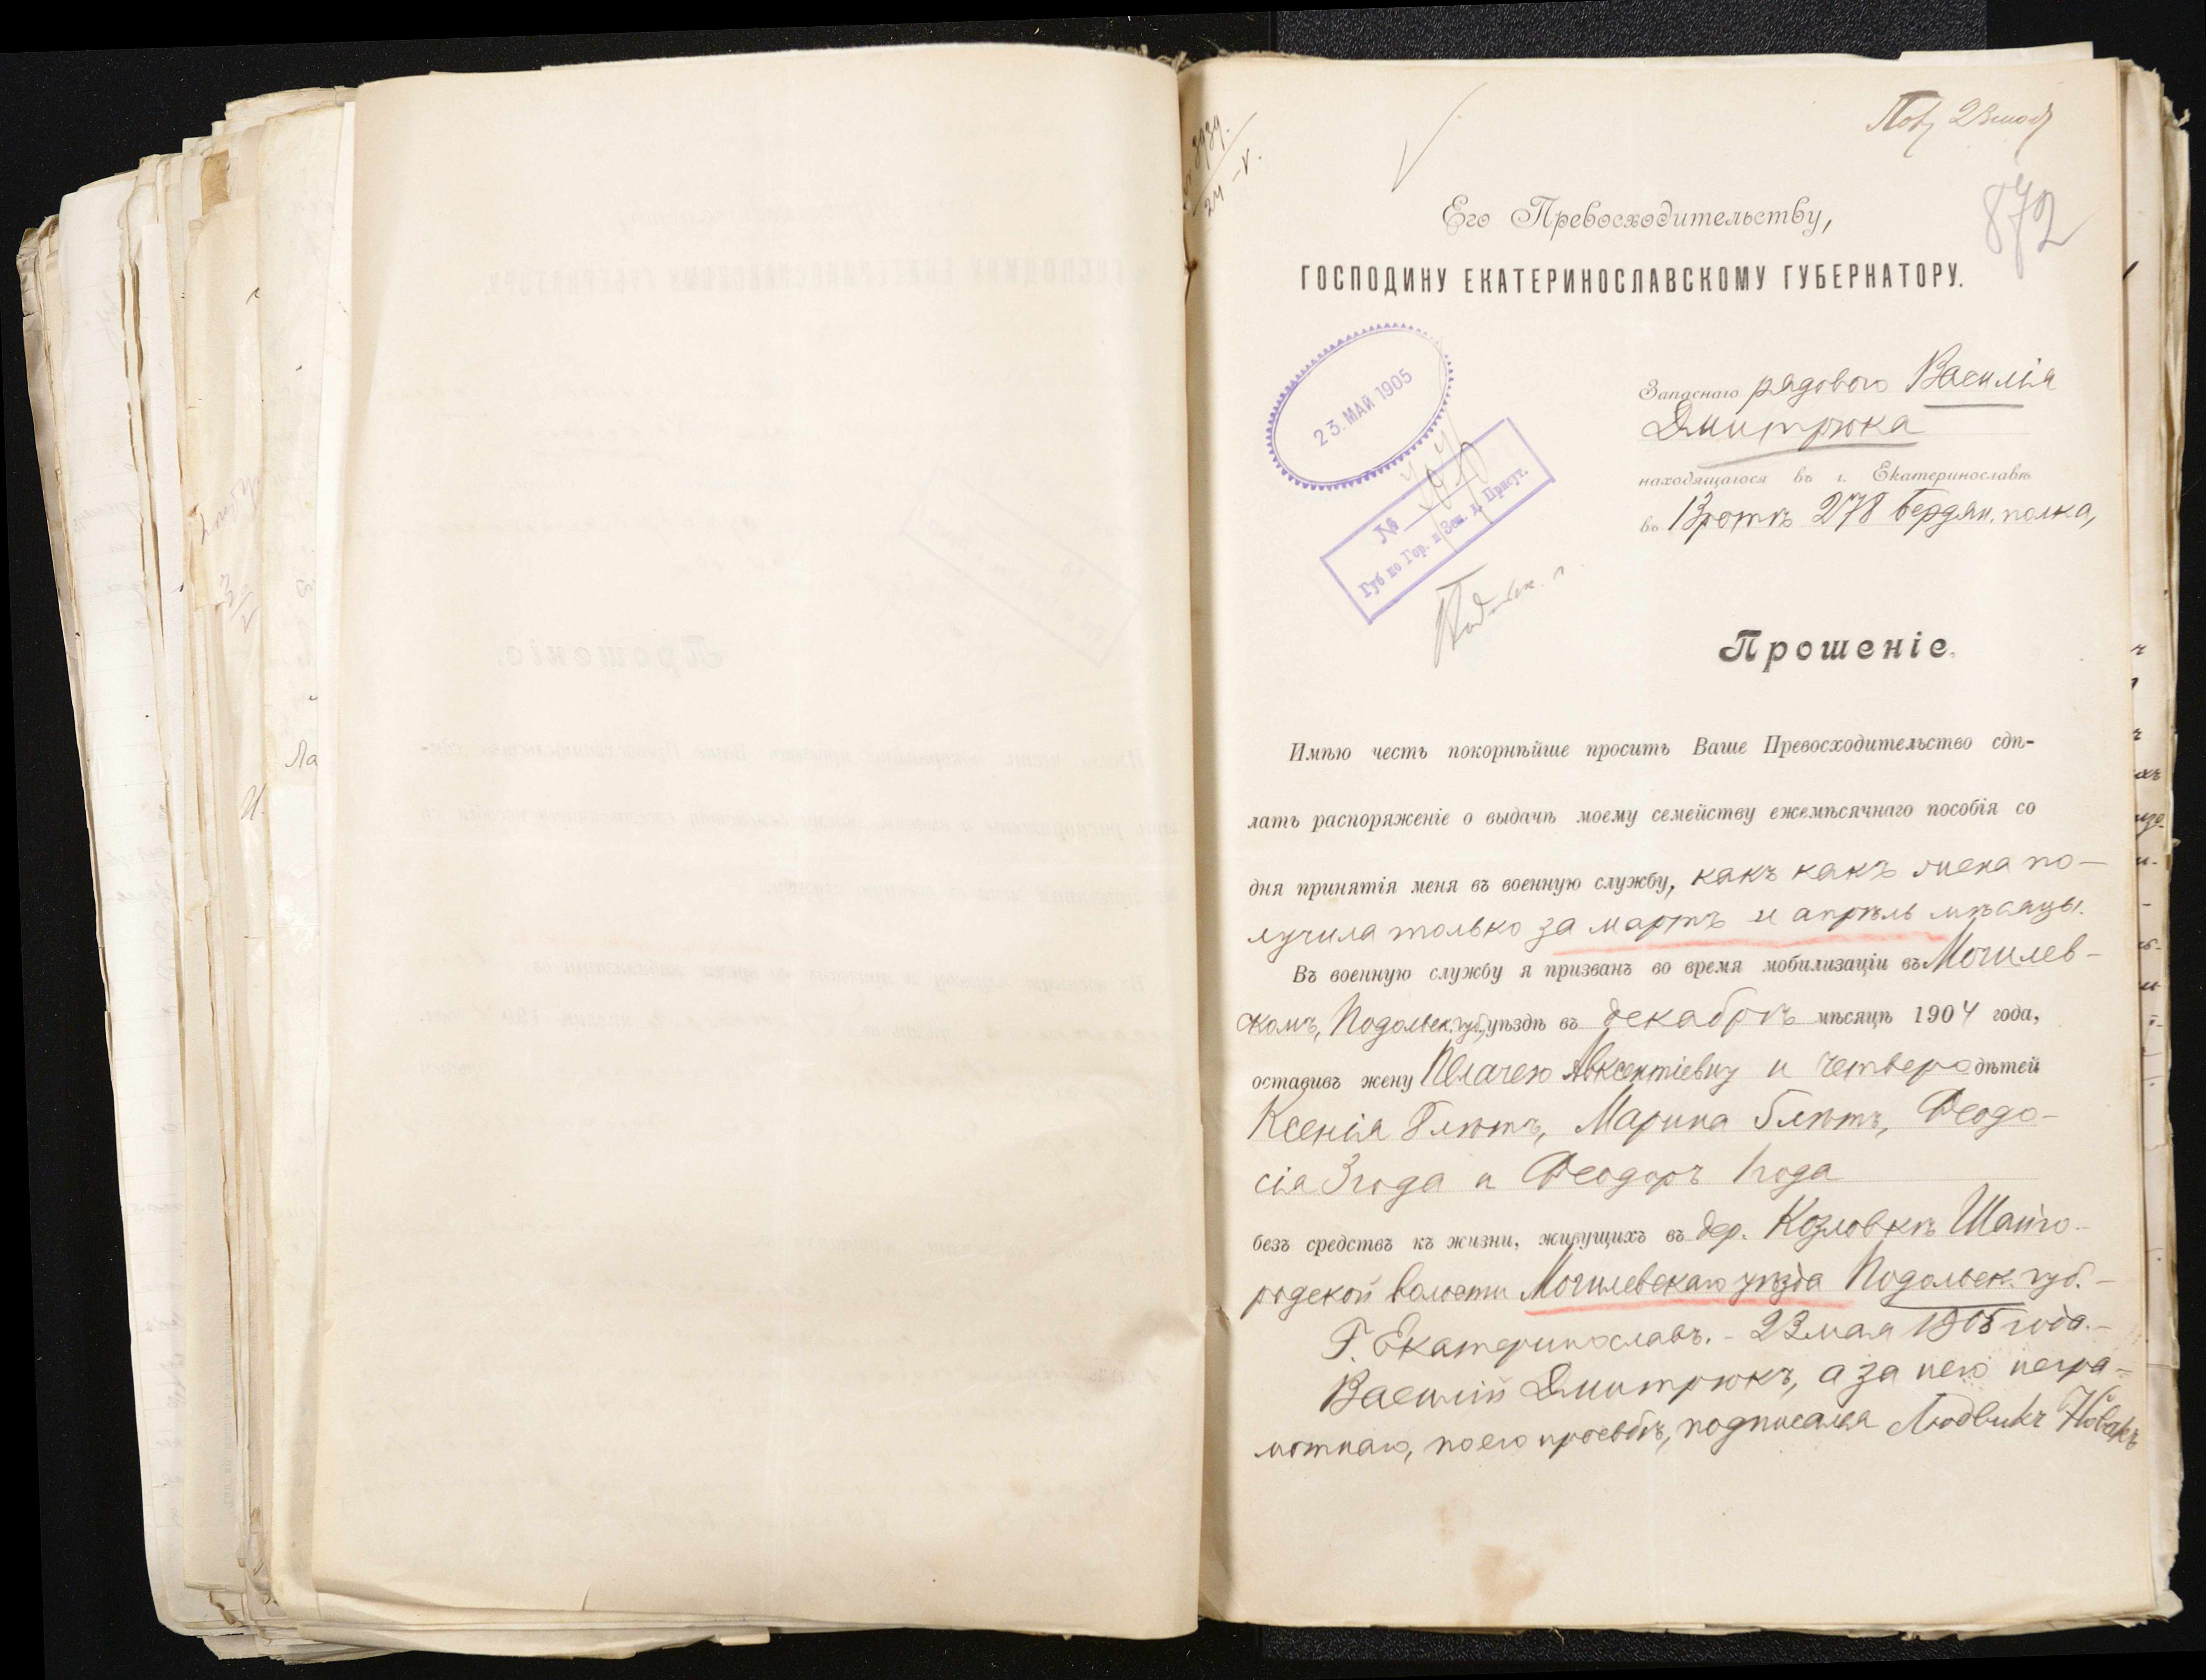 872
Его Превосходительству,
ГОСПОДИНУ ЕКАТЕРИНОСЛАВСКОМУ ГУБЕРНАТОРУ.
23. МАЙ 1905
№
Губ по Гор. и Зем. д. Присут.
Запаснаго рядового Василія
Дмитрюка
находящагося въ г. Екатеринославѣ
въ 13 ротѣ 278 Бердян. полка,
Прошеніе.
Имѣю честь покорнѣйше просить Ваше Превосходительство сдѣ-
лать распоряженіе о выдачѣ моему семейству ежемѣсячнаго пособія со
дня принятія меня въ военную службу, какъ какъ жена по-
лучила только за мартъ и апрѣль мѣсяцы.
Въ военную службу я призванъ во время мобилизаціи въ Могилев-
скомъ, Подольск. губ., уѣздѣ въ декабрѣ мѣсяцѣ 1904 года,
оставивъ жену Пелагею Авксентіевну и четверо дѣтей
Ксенія 8 лѣтъ, Марина 5 лѣтъ, Ѳеодо-
сія 3 года и Ѳеодоръ 1 года
безъ средствъ къ жизни, живущихъ въ дер. Козловкѣ Шаго-
родской волости Могилевскаго уѣзда Подольск. губ. -
Г. Екатеринославъ. - 23 мая 1905 года. -
Василій Дмитрюкъ, а за него негра-
мотнаго, по его просьбѣ, подписался Людвикъ Новакъ